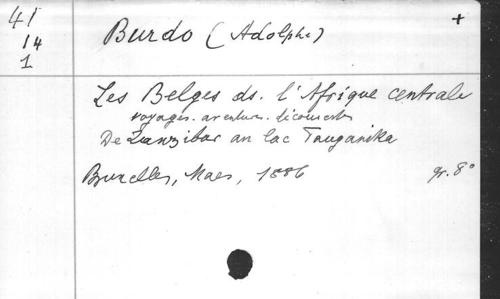 41
14
1
+
Burdo (Adolphe)
Les Belges ds. l'Afrique centrale
voyages. aventures. découvertes
De Zanzibar au lac Tanganika
Bruxelles, Maes, 1886 gr. 8°